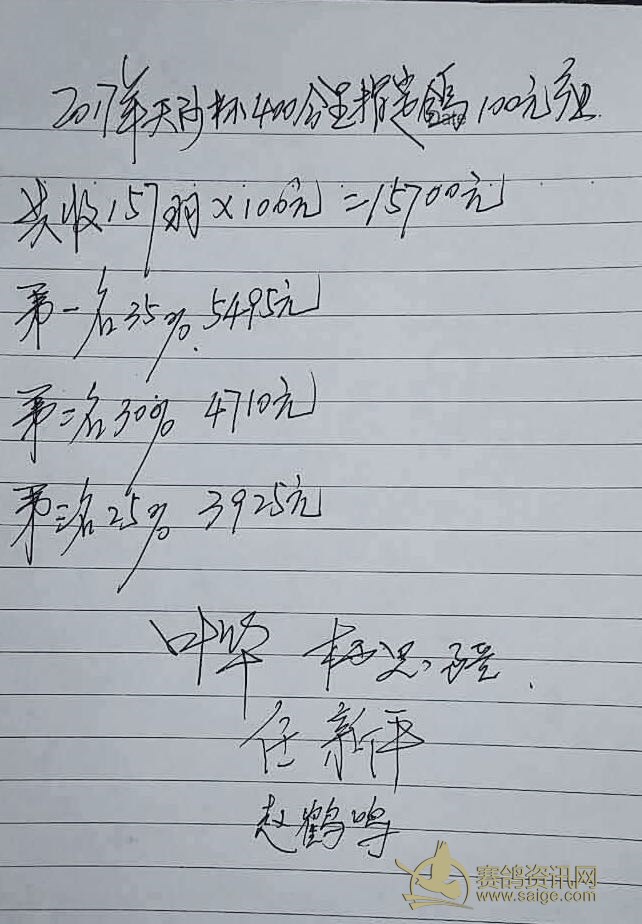 2017年天沙杯400公里指定鸽100元组
共收157羽×100元=15700元
第一名35%. 5495元
第二名30% 4710元
第三名25% 3925元
叶华
任新评
赵鹤鸣
赛鸽资讯网
www.saige.com